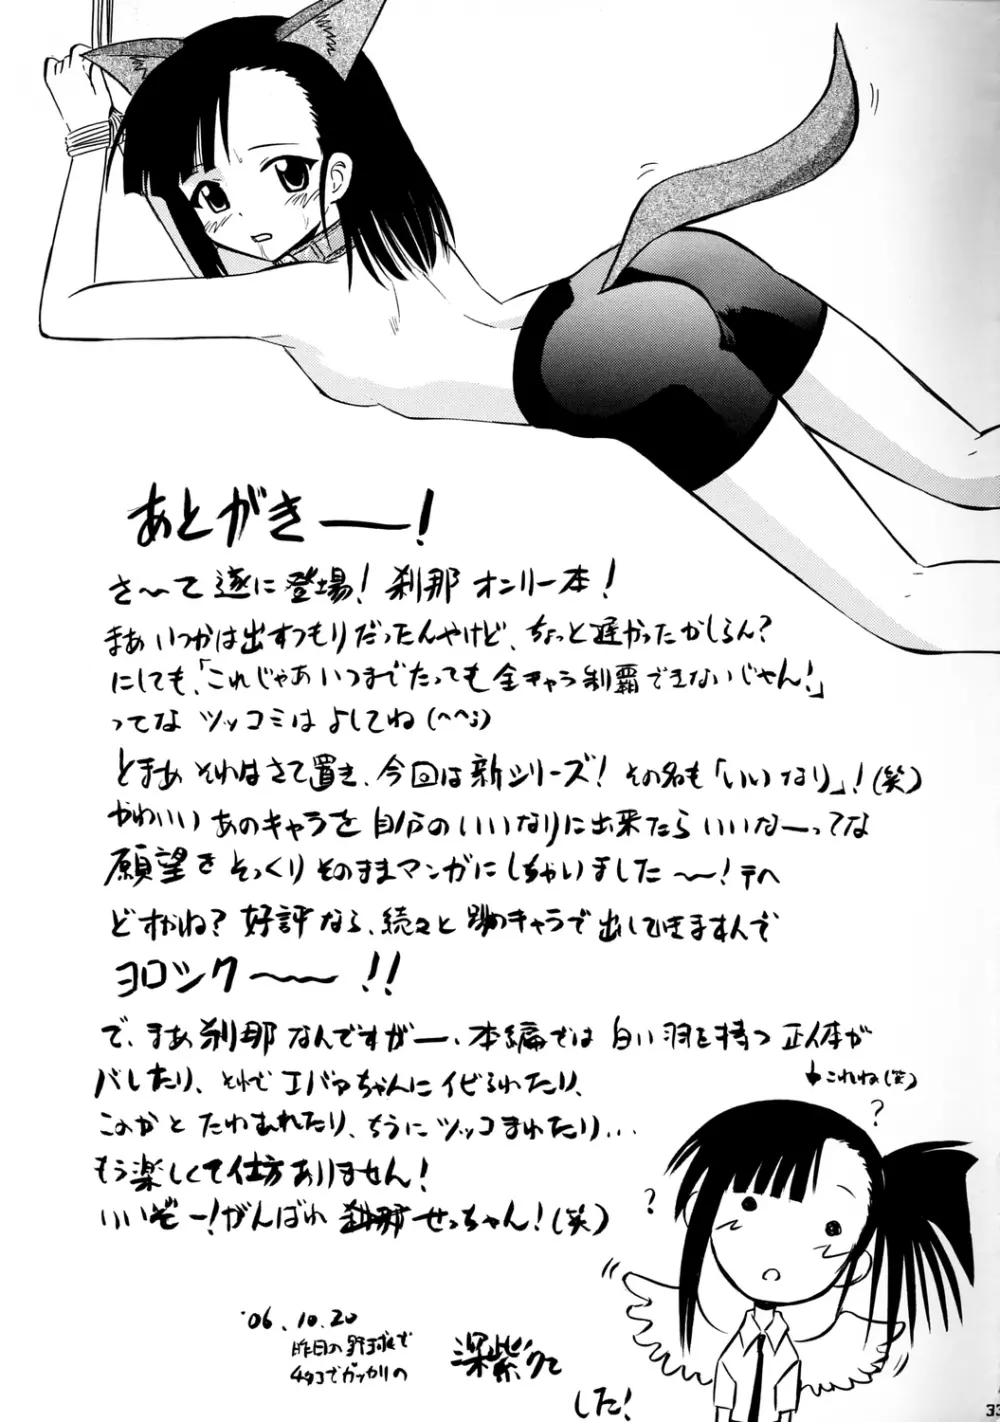 あとがきー！
さ〜て遂に登場！刹那オンリー本！
まあいつかは出すつもりだったんやけど、ちょっと遅かったかしるん？
にしても、「これじゃあいつまでたっても全キャラ制覇できないじゃん！」
ってなツッコミはよしてね(^^;)
とまあそれはさて置き、今回は新シリーズ！その名も「いいなり」！(笑)
かわいいあのキャラを自分のいいなりに出来たらいいなーってな
願望をそっくりそのままマンガにしちゃいました〜！テヘ
どすかね？好評なら、続々と他のキャラで出してきますんで
ヨロシク〜〜！！
で、まあ刹那なんですがー、本編では白い羽を持つ正体が
バレたり、それでエバァちゃんにイビられたり、
このかとたわむれたり、ちうにツッコまれたり...
もう楽しくて仕方ありません！
いいぞー！がんばれ刹那せっちゃん！(笑)
これね(笑)
?
?
'06.10.20
昨日の野球で
4タコでガッカリの
深紫クで
した！
33